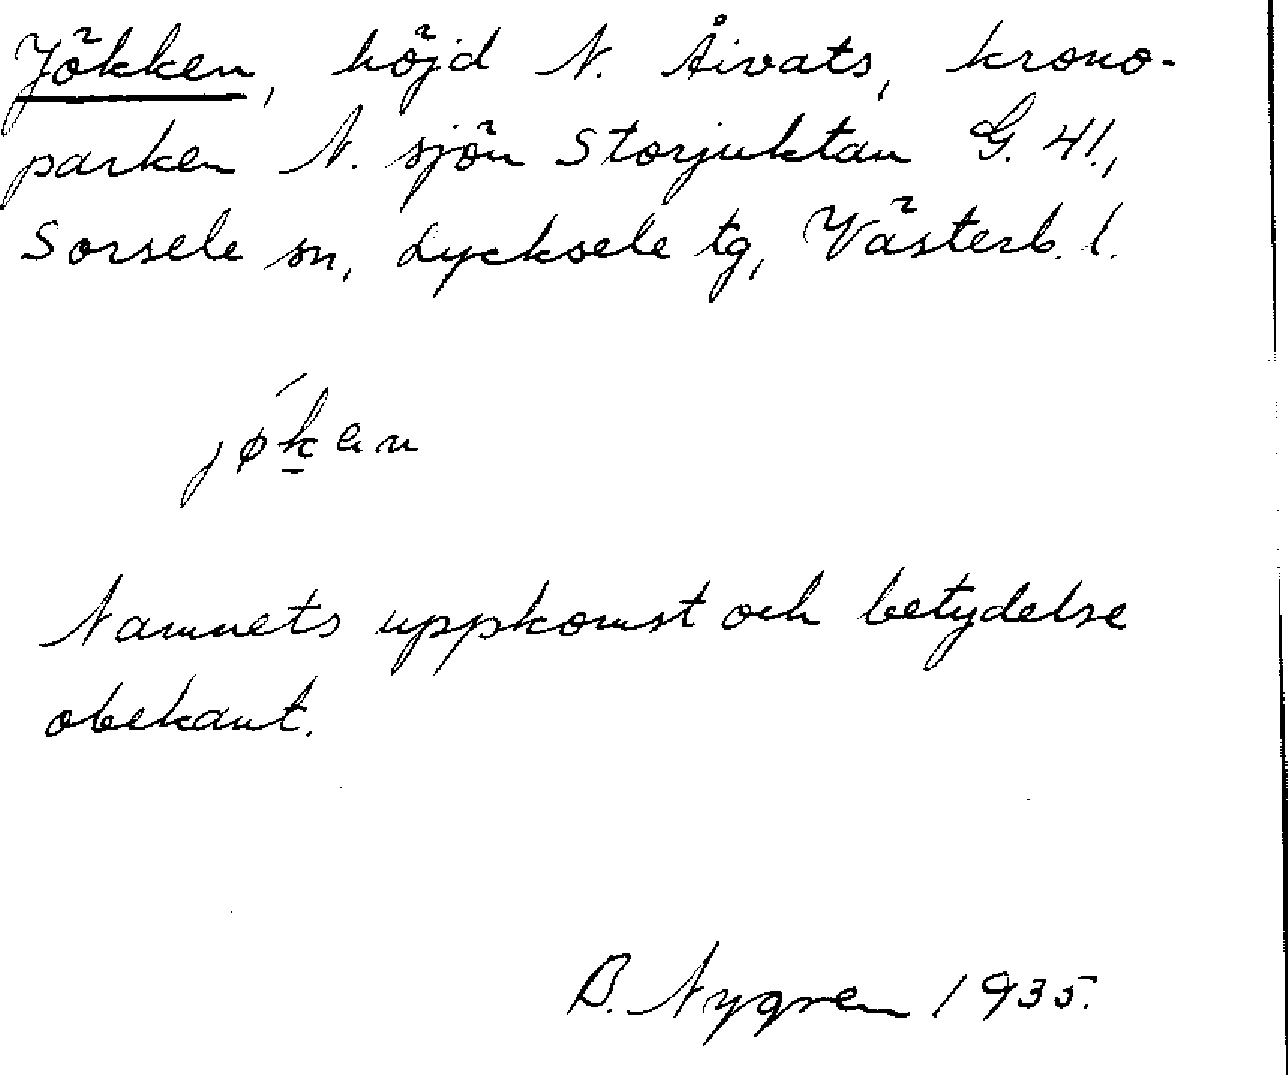 Jökken, höjd N. Åivats, krono-
parken N. sjön Storjuktan G. 41.,
Sorsele sn, Lycksele tg, Västerb. l.
jø´k̲en
Namnets uppkomst och betydelse
obekant.
B. Nygren 1935.